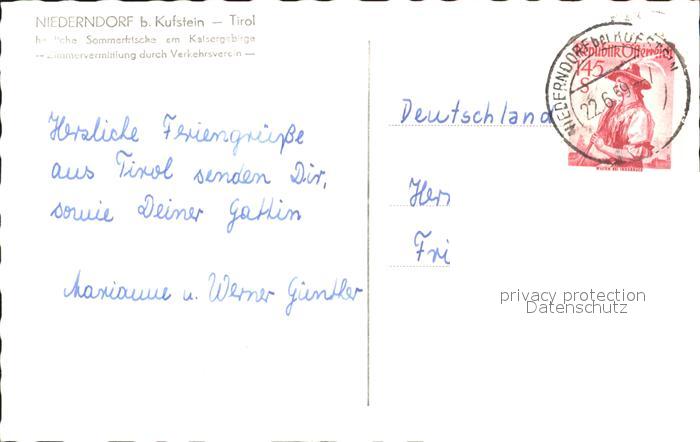 NIEDERNDORF b. Kufstein — Tirol
herrliche Sommerfrische am Kaisergebirge
— Zimmervermittlung durch Verkehrsverein —
Herzliche Feriengrüße
aus Tirol senden Dir,
sowie Deiner Gattin
Marianne u. Werner Günther
NIEDERNDORF bei KUFSTEIN
22.6.59
Republik Österreich
1.45
S
Deutschland
Herr
Fri
privacy protection
Datenschutz